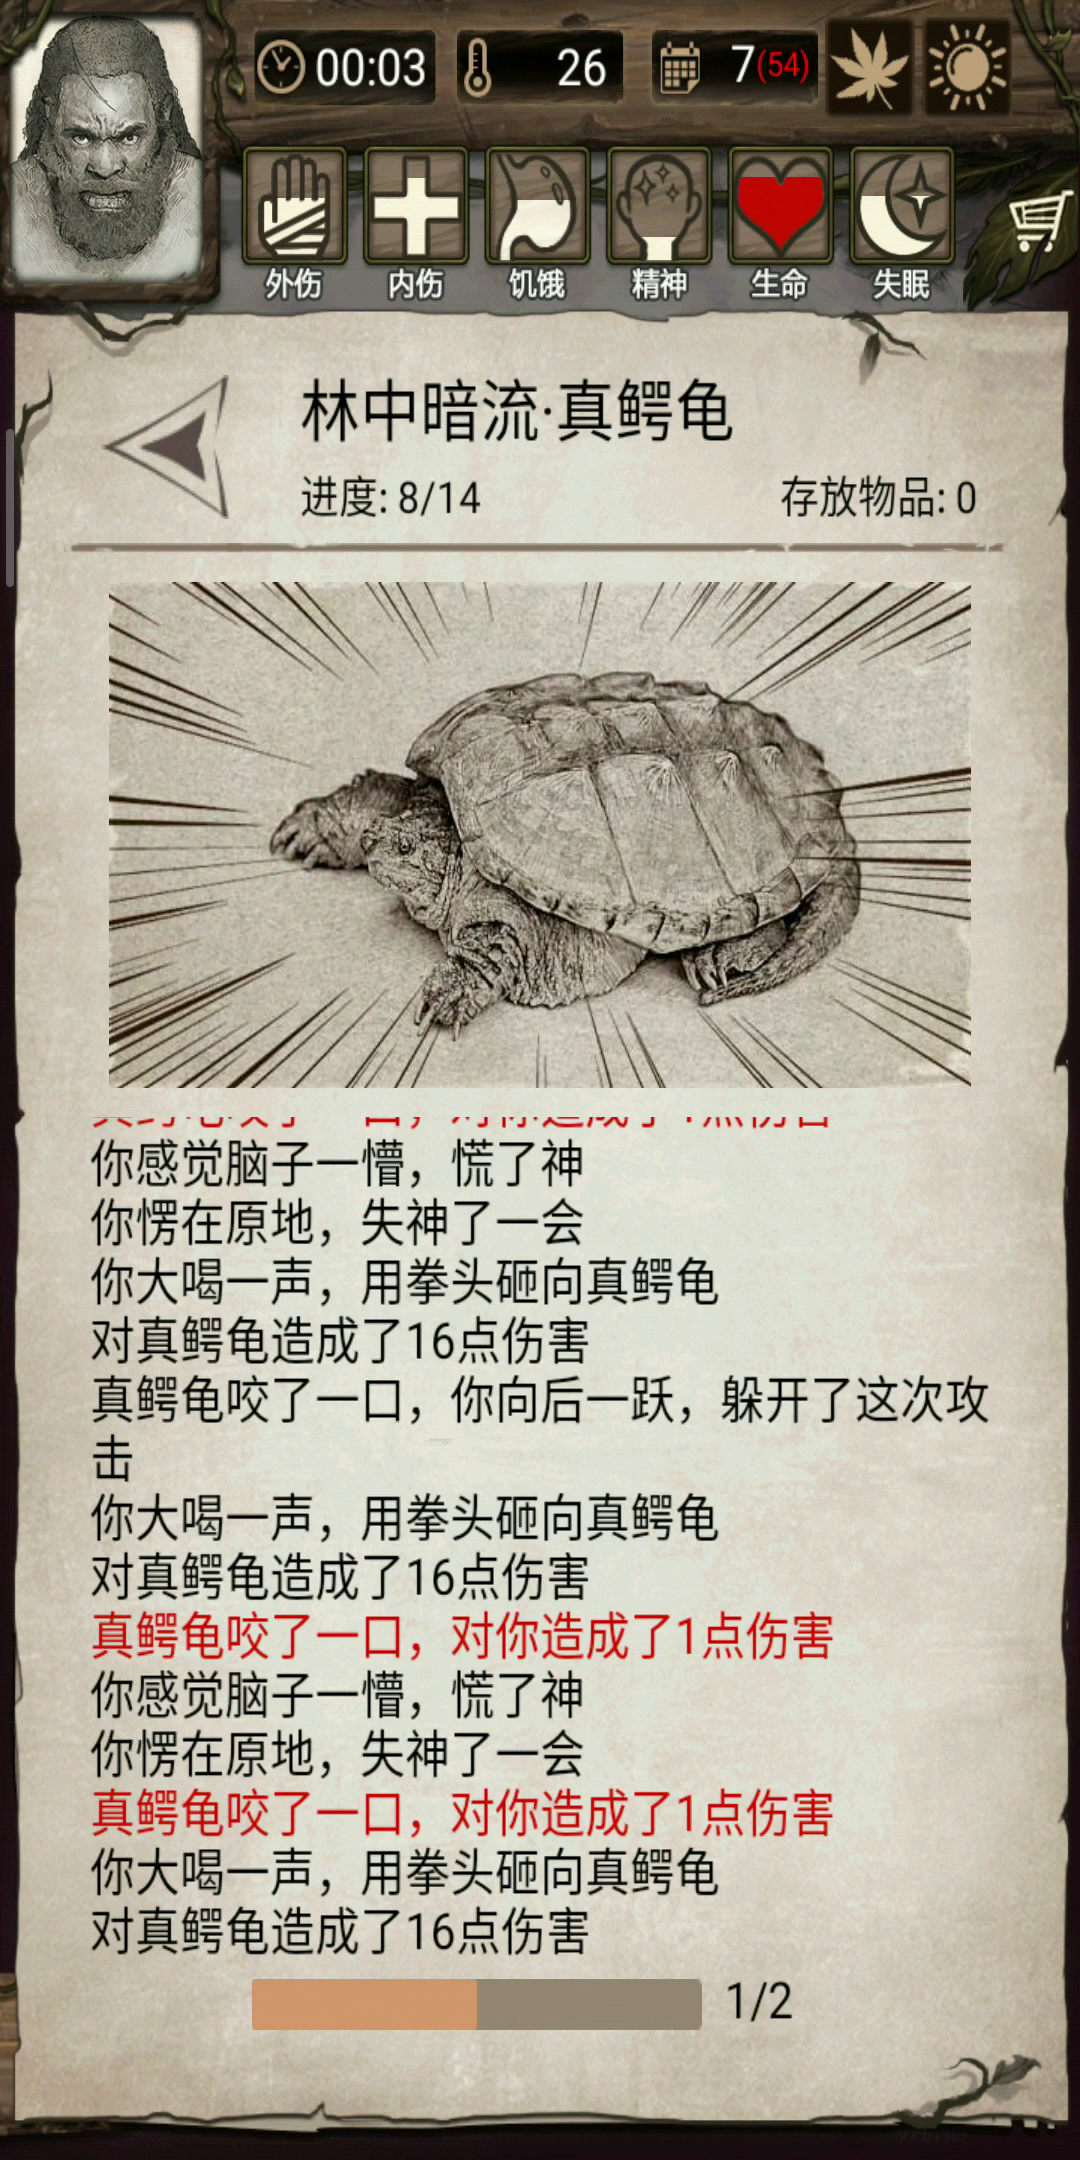 00:03 26 7(54)
外伤 内伤 饥饿 精神 生命 失眠
林中暗流·真鳄龟
进度: 8/14 存放物品: 0
你感觉脑子一懵，慌了神
你愣在原地，失神了一会
你大喝一声，用拳头砸向真鳄龟
对真鳄龟造成了16点伤害
真鳄龟咬了一口，你向后一跃，躲开了这次攻
击
你大喝一声，用拳头砸向真鳄龟
对真鳄龟造成了16点伤害
真鳄龟咬了一口，对你造成了1点伤害
你感觉脑子一懵，慌了神
你愣在原地，失神了一会
真鳄龟咬了一口，对你造成了1点伤害
你大喝一声，用拳头砸向真鳄龟
对真鳄龟造成了16点伤害
1/2